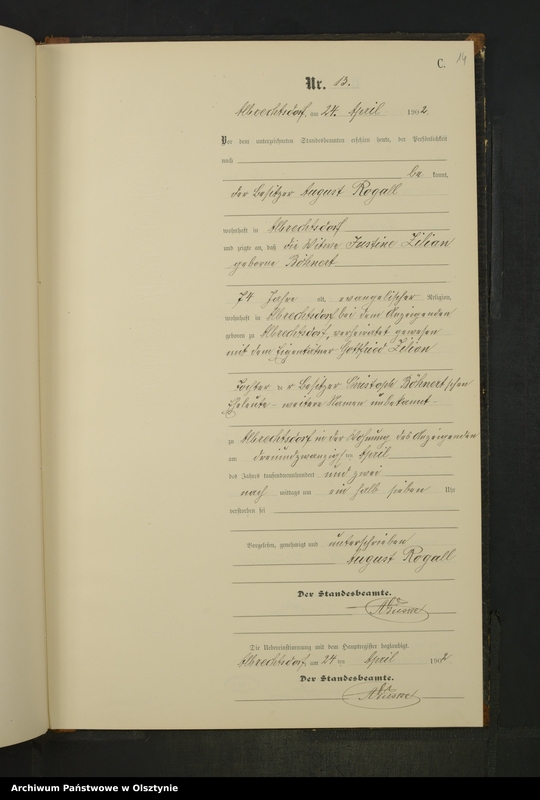 C. 14
Nr. 13.
Albrechtsdorf, am 24. April 1902.
Vor dem unterzeichneten Standesbeamten erschien heute, der Persönlichkeit
nach
be kannt,
der Besitzer August Rogall
wohnhaft in Albrechtsdorf
und zeigte an, daß die Witwe Justine Lilian
geborne Böhnert
74 Jahre alt, evangelischer Religion,
wohnhaft in Albrechtsdorf bei dem Anzeigenden
geboren zu Albrechtsdorf, verheiratet gewesen
mit dem Eigenkätner Gottfried Lilian
Tochter der Besitzer Christoph Böhnert'schen
Eheleute - weitere Namen unbekannt -
zu Albrechtsdorf in der Wohnung des Anzeigenden
am dreiundzwanzigsten April
des Jahres tausendneunhundert und zwei
nach mittags um ein halb sieben Uhr
verstorben sei
Vorgelesen, genehmigt und unterschrieben
August Rogall
Der Standesbeamte.
Die Uebereinstimmung mit dem Hauptregister beglaubigt.
Albrechtsdorf, am 24 ten April 1902
Der Standesbeamte.
Archiwum Państwowe w Olsztynie